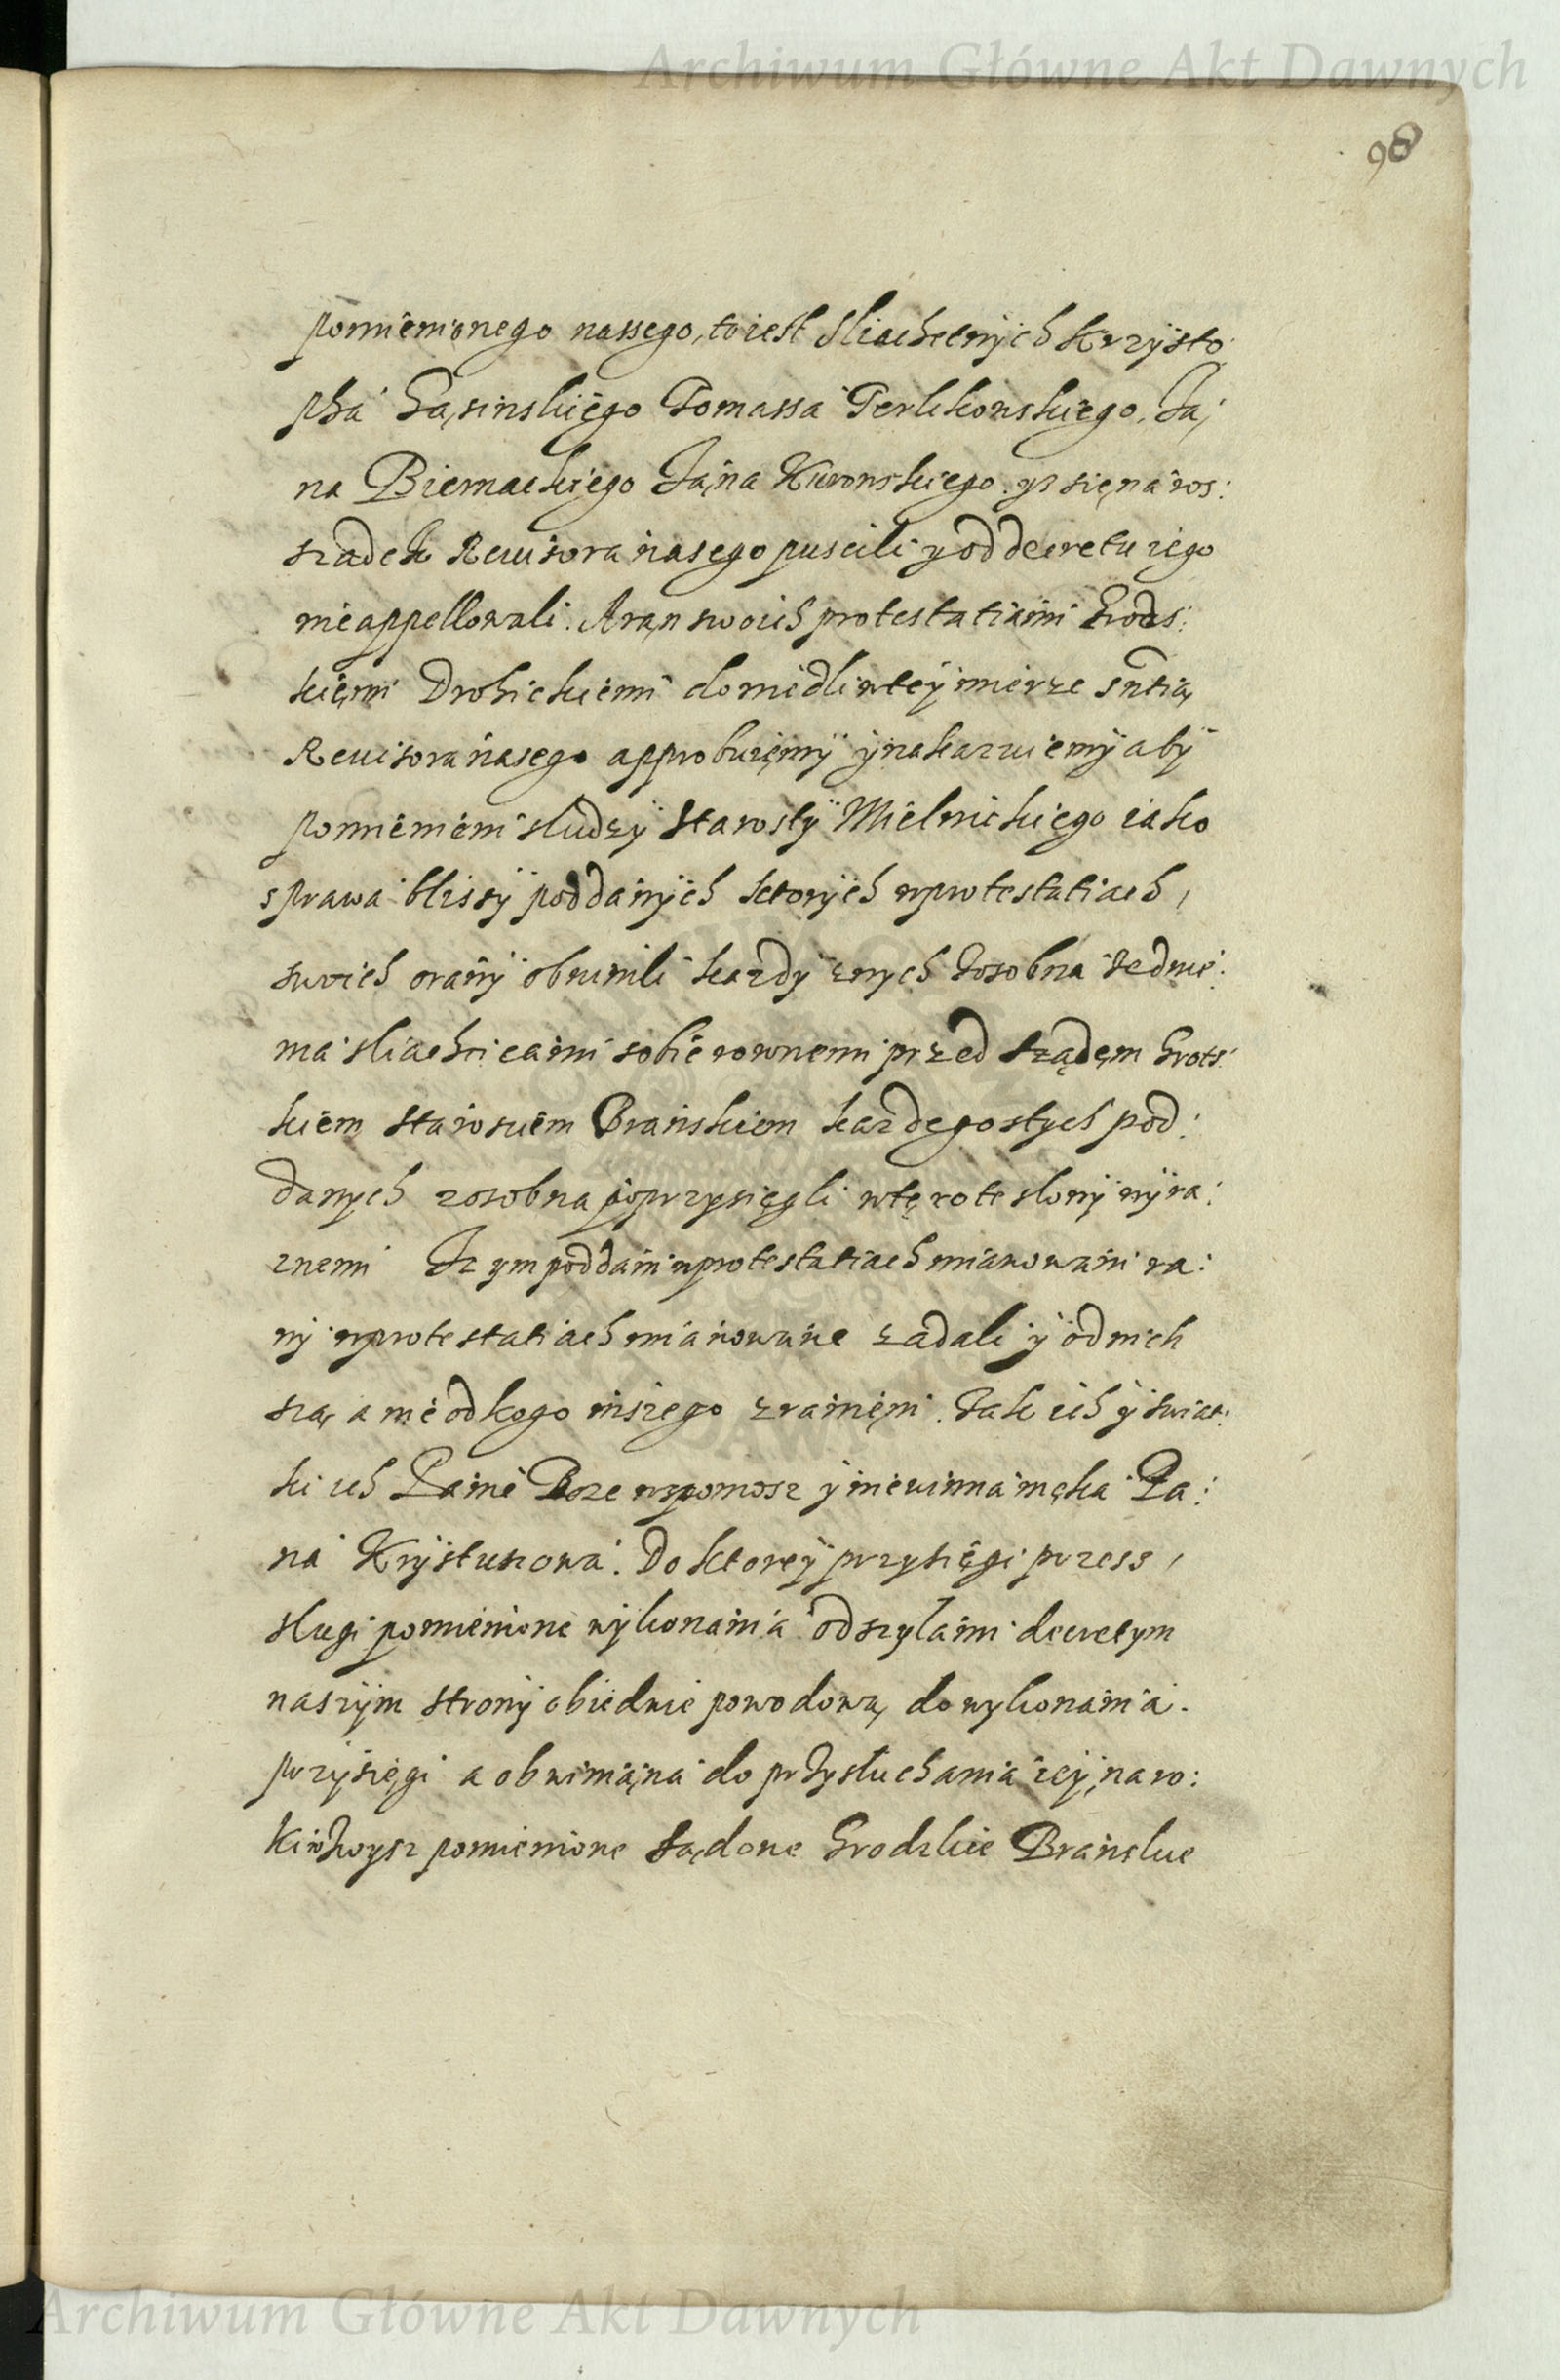 Archiwum Główne Akt Dawnych
98
pomienionego nassego, to iest Sliachetnÿch Krzÿsto
pha Gąsinskiego Tomassa Terlikowskiego, Ja,
na Biernackiego Jana Kurowskiego. yz się na ros:
szadek Reuisora nasego puscili y od decretu iego
nie appellowali. A ran swoich protestatiami Grods:
kiemi Drohickiemi dowiedli w teÿ mierze sntią
Reuisora nasego approbuiemÿ ÿ nakazuiemÿ abÿ
pomienieni sludzÿ Starostÿ Mielnickiego iako
sprawa blissÿ poddanÿch ktorÿch w protestatiach,
swoich o ranÿ obwinili kazdÿ z nych zosobna z dwie:
ma sliachcicami sobie rownemi przed sządem Grots:
kiem Starosciem Branskiem kazdego s tych pod:
danych zosobna poprzysięgli w tę rote slowÿ wÿra:
znemi Iz ym poddani w protestatiach mianowani ra:
nÿ w protestatiach mianowane zadali ÿ od nich
są, a nie od kogo inszego zranieni. Tak ich ÿ swiat:
ki ich Panie Boze wspomosz ÿ niewinna męka Pa:
na Krÿstusowa. Do ktoreÿ przysięgi przess,
slugi pomienione wÿkonania odszylami decretym
naszÿm stronÿ obiedwie powodową do wykonania.
przÿsięgi a obwinianą do przysluchania ieÿ, na ro:
ki pomienione Sądowe Grodzkie Branskie
Archiwum Główne Akt Dawnych